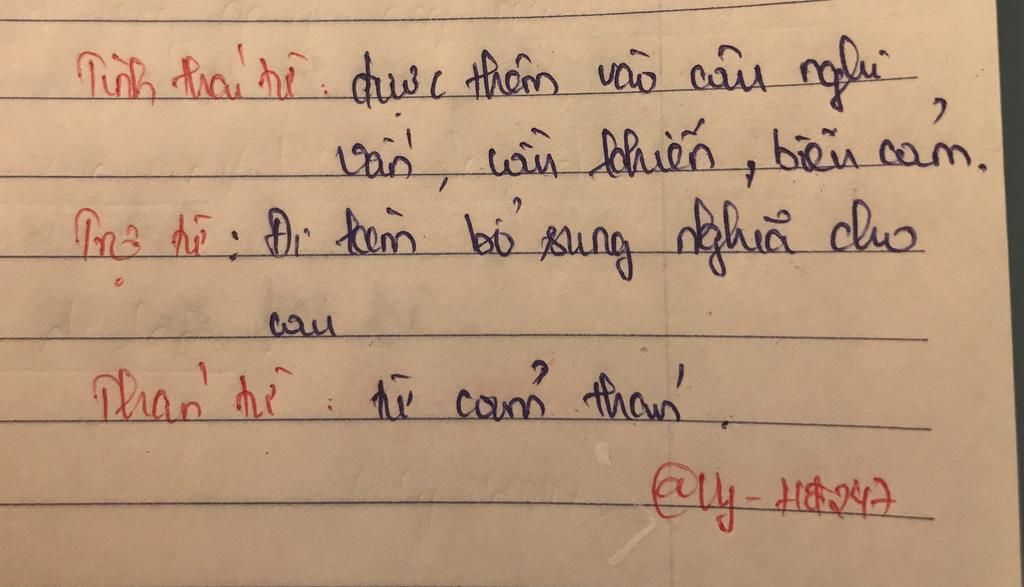 Tình thái từ : được thêm vào câu nghi
vấn, cầu khiến, biểu cảm.
Trợ từ : Đi kèm bổ sung nghĩa cho
câu
Thán từ : từ cảm thán.
@Uy - HĐ247